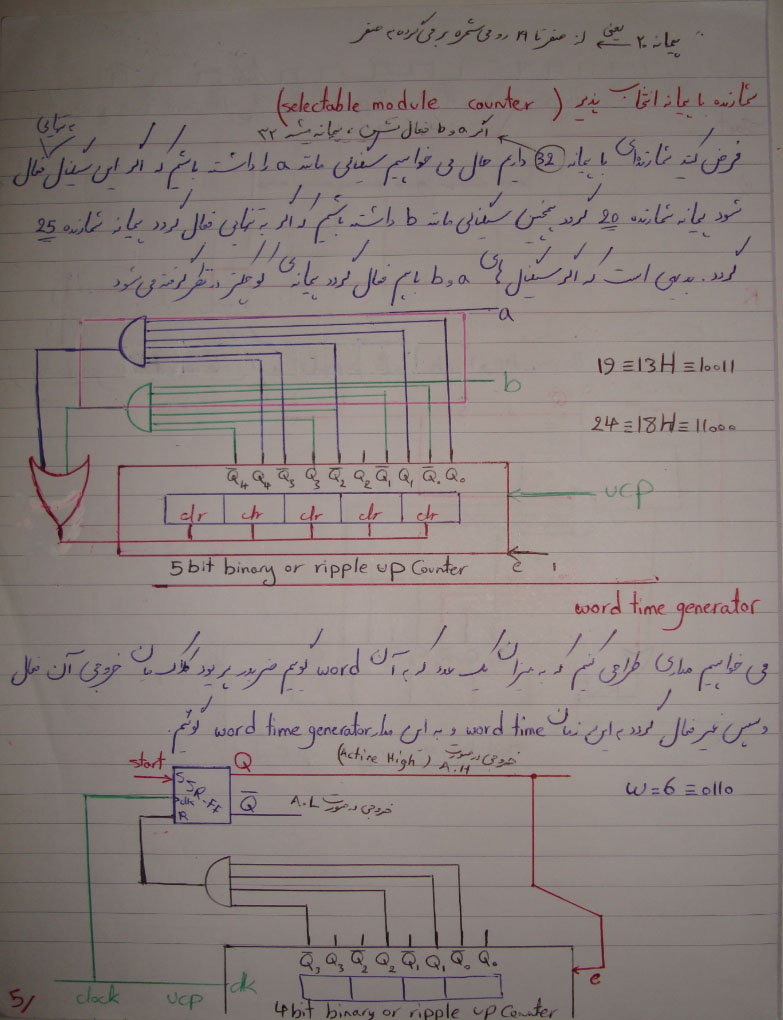 پیمانه ۲۰ یعنی از صفر تا ۱۹ رو می شمره برمی گرده به صفر
شمارنده با پیمانه انتخاب پذیر (selectable module counter)
اگر a و b فعال نشن، پیمانه میشه ۳۲
به تنهایی
فرض کنید شمارنده‌ای با پیمانه 32 داریم حال می خواهیم سیگنالی مانند a را داشته باشیم که اگر این سیگنال فعال
شود پیمانه شمارنده 20 گردد همچنین سیگنالی مانند b داشته باشیم که اگر به تنهایی فعال گردد پیمانه شمارنده 25
گردد. بدیهی است که اگر سیگنال های a و b باهم فعال گردد پیمانه‌ی کوچکتر در نظر گرفته می شود
a
19 ≡ 13H ≡ 10011
b
24 ≡ 18H ≡ 11000
Q̅4 Q4 Q̅3 Q3 Q̅2 Q2 Q̅1 Q1 Q̅0 Q0
ucp
clr clr clr clr clr
5 bit binary or ripple up Counter
e 1
word time generator
می خواهیم مداری طراحی کنیم که به میزان یک عدد که به آن word گوئیم ضربدر پریود کلاک مان خروجی آن فعال
و سپس غیر فعال گردد به این زمان word time و به این مدار word time generator گوئیم.
start Q (Active High) خروجی در صورت A.H
S
SR-FF
clk
R
Q̅ خروجی در صورت A.L
w = 6 ≡ 0110
Q̅3 Q3 Q̅2 Q2 Q̅1 Q1 Q̅0 Q0
e
clock ucp clk
4 bit binary or ripple up Counter
5/